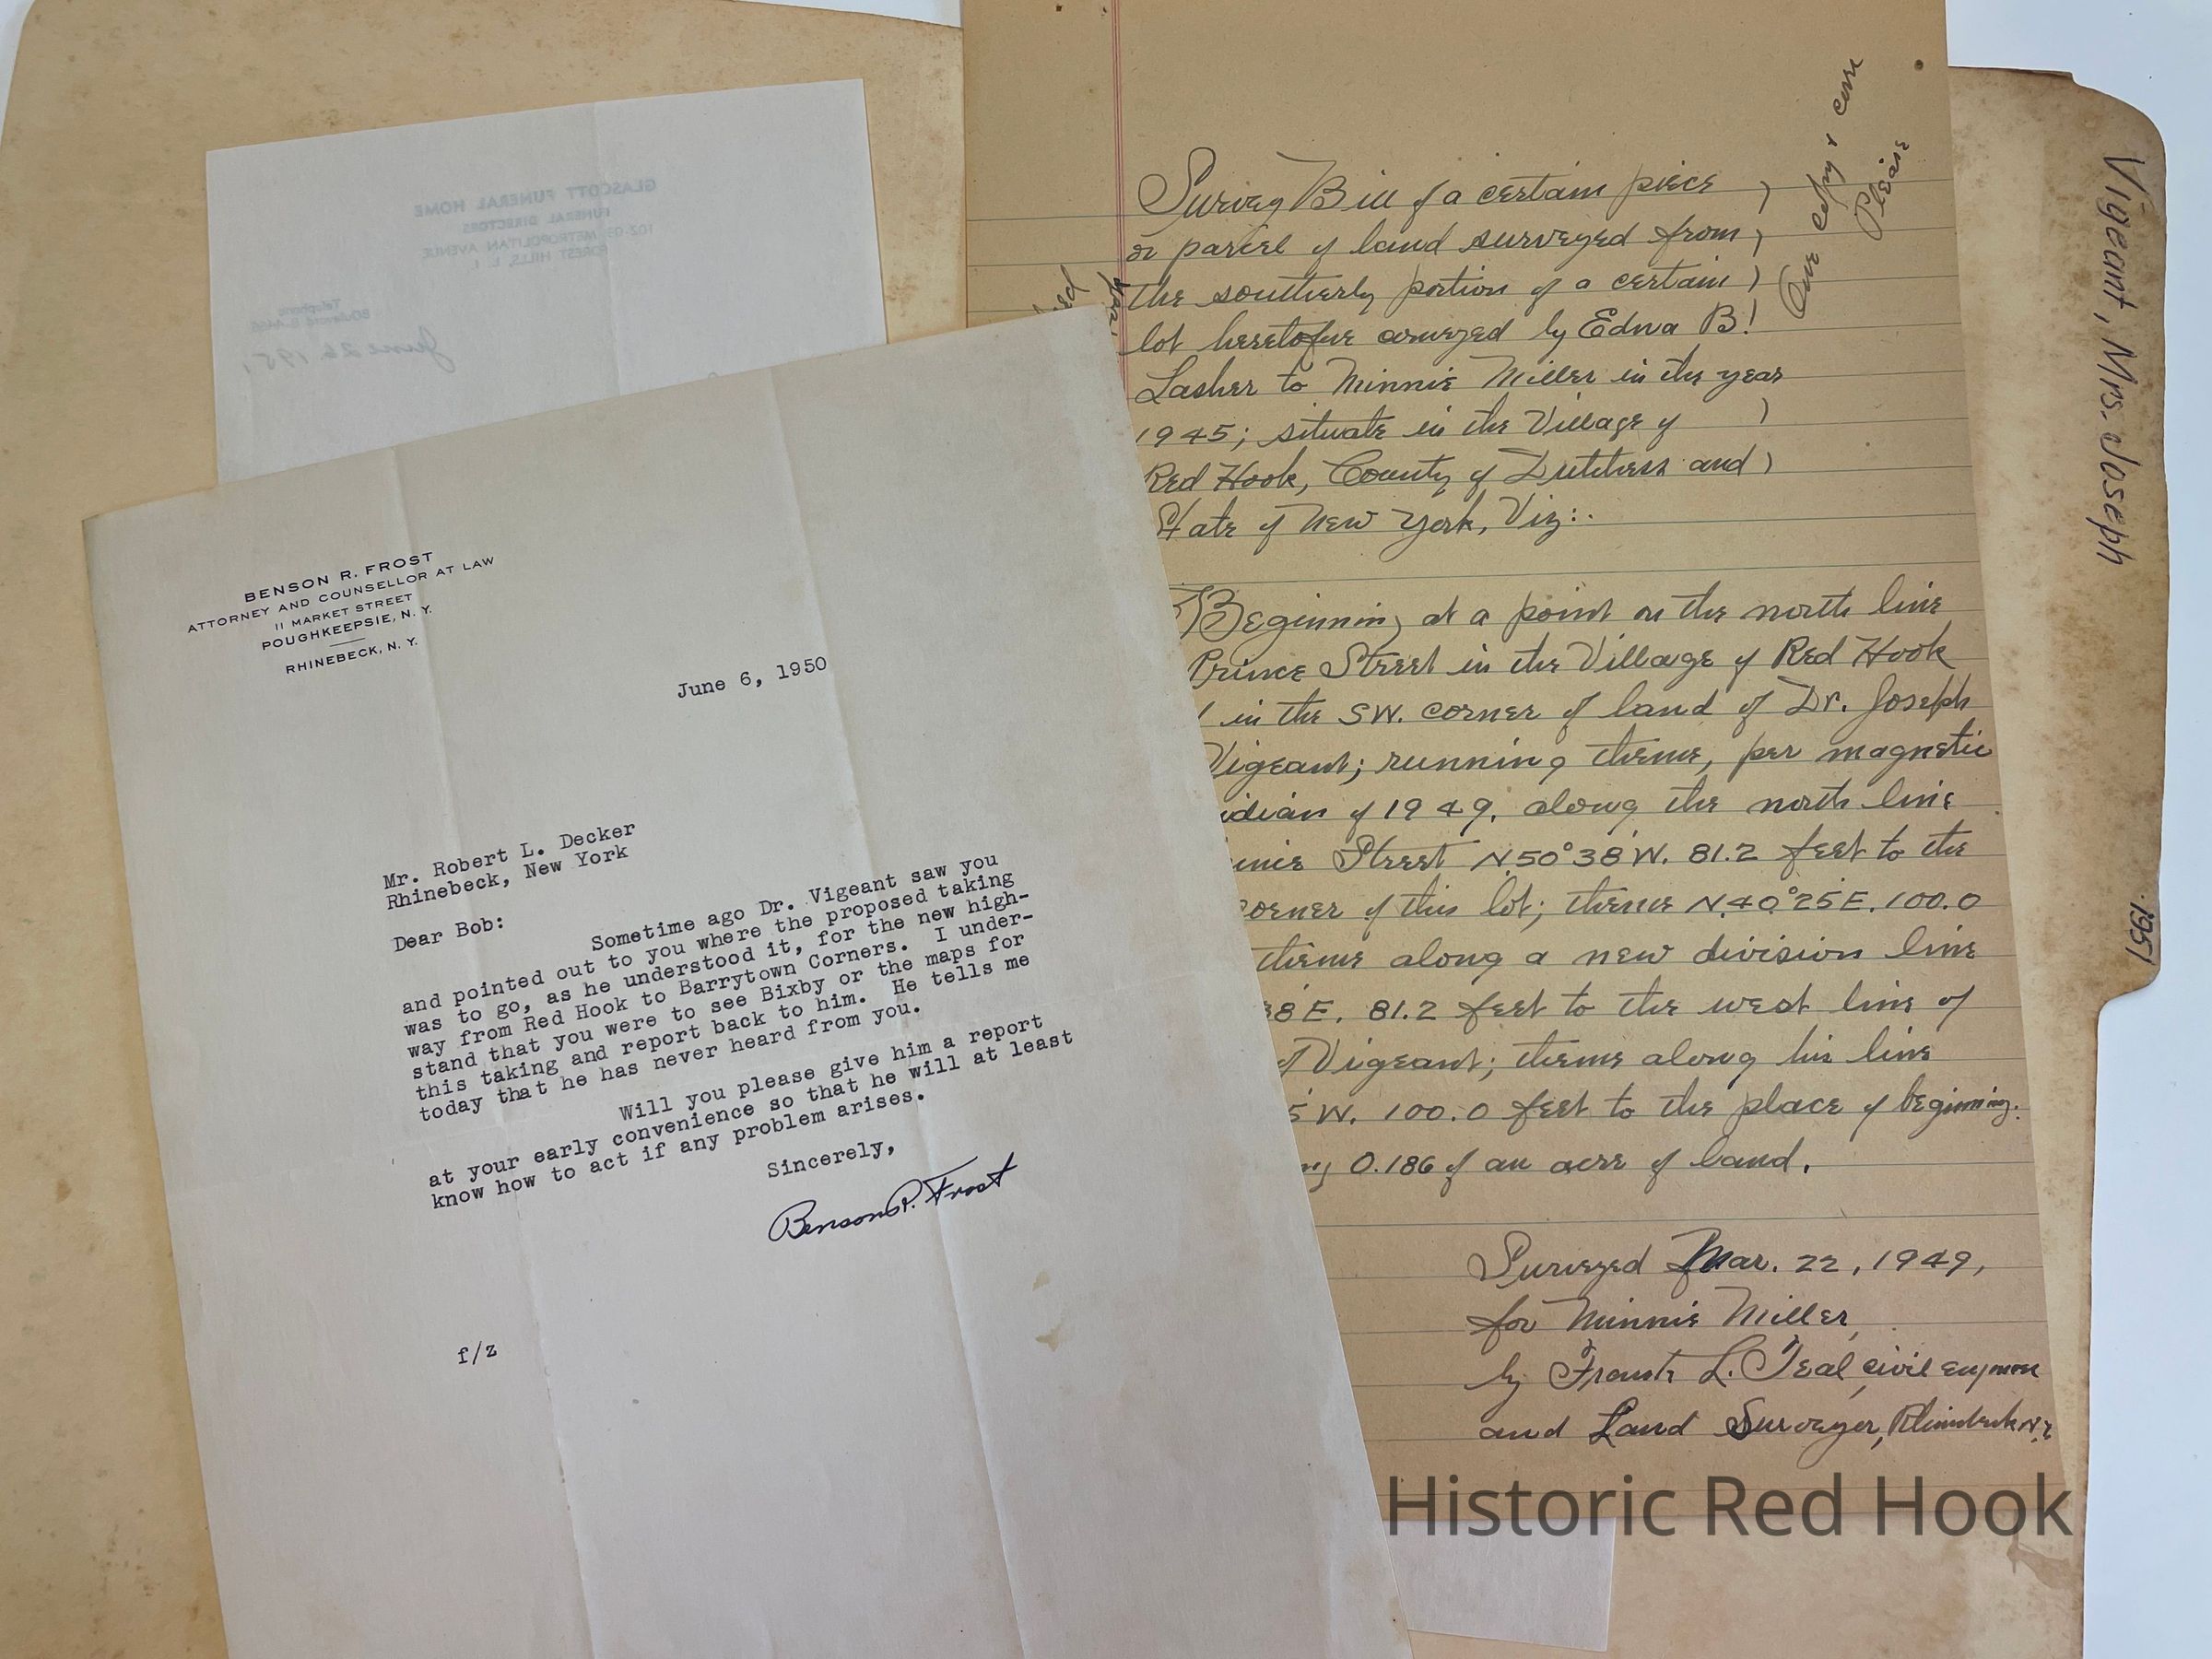 GLASCOTT FUNERAL HOME
FUNERAL DIRECTORS
102-03 METROPOLITAN AVENUE
FOREST HILLS, L. I.
Telephone
June 26 1951
BENSON R. FROST
ATTORNEY AND COUNSELLOR AT LAW
11 MARKET STREET
POUGHKEEPSIE, N. Y.
RHINEBECK, N. Y.
June 6, 1950
Mr. Robert L. Decker
Rhinebeck, New York
Dear Bob:
Sometime ago Dr. Vigeant saw you
and pointed out to you where the proposed taking
was to go, as he understood it, for the new high-
way from Red Hook to Barrytown Corners. I under-
stand that you were to see Bixby or the maps for
this taking and report back to him. He tells me
today that he has never heard from you.
Will you please give him a report
at your early convenience so that he will at least
know how to act if any problem arises.
Sincerely,
Benson R. Frost
f/z
One copy & corr
Please
Survey Bill of a certain piece )
or parcel of land surveyed from )
the southerly portion of a certain )
lot heretofore conveyed by Edna B. )
Lasher to Minnie Miller in the year
1945; situate in the Village of )
Red Hook, County of Dutchess and )
State of New York, Viz:.
Beginning at a point on the north line
Prince Street in the Village of Red Hook
in the SW. corner of land of Dr. Joseph
Vigeant; running thence, per magnetic
idian of 1949, along the north line
Street N50°38'W. 81.2 feet to the
corner of this lot; thence N.40°25'E. 100.0
thence along a new division line
38'E. 81.2 feet to the west line of
Vigeant; thence along his line
5'W. 100.0 feet to the place of beginning.
0.186 of an acre of land.
Surveyed Mar. 22, 1949,
for Minnie Miller,
by Frank L. Teal, civil engineer
and Land Surveyor, Rhinebeck N.Y.
Vigeant, Mrs. Joseph
1951
Historic Red Hook